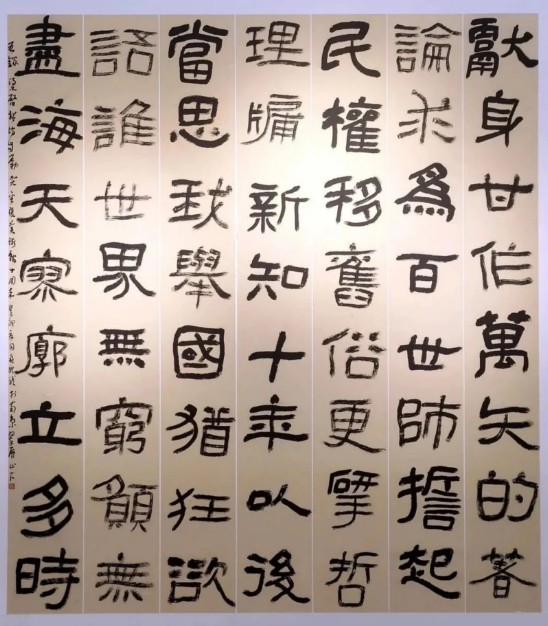 獻身甘作萬矢的著
論求爲百世師擔起
民權移舊俗更揅哲
理牖新知十年以後
當思我舉國猶狂欲
語誰世界無窮願無
盡海天寥廓立多時